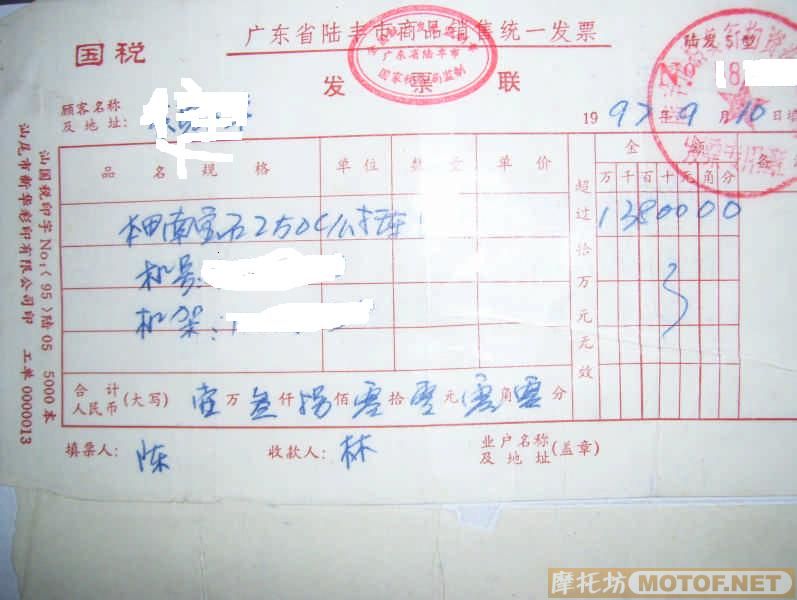 国税
广东省陆丰市商品销售统一发票
广东省陆丰市
国家税务局监制
发票联
陆发 51型
No 18
顾客名称
及地址:
1997年9月10日填
品名规格 单位 数量 单价 超过拾万元无效 金额 备
万千百十元角分
本田南宝石250C公主车 1380000
机号:
机架:
合计
人民币 (大写) 壹万叁仟捌佰零拾零元零角零分
填票人: 陈 收款人: 林 业户名称
及地址 (盖章)
发票专用章
汕国税印字No:(95)陆05 5000本
汕尾市新华彩印有限公司印 工单 0000013
摩托坊MOTOF.NET